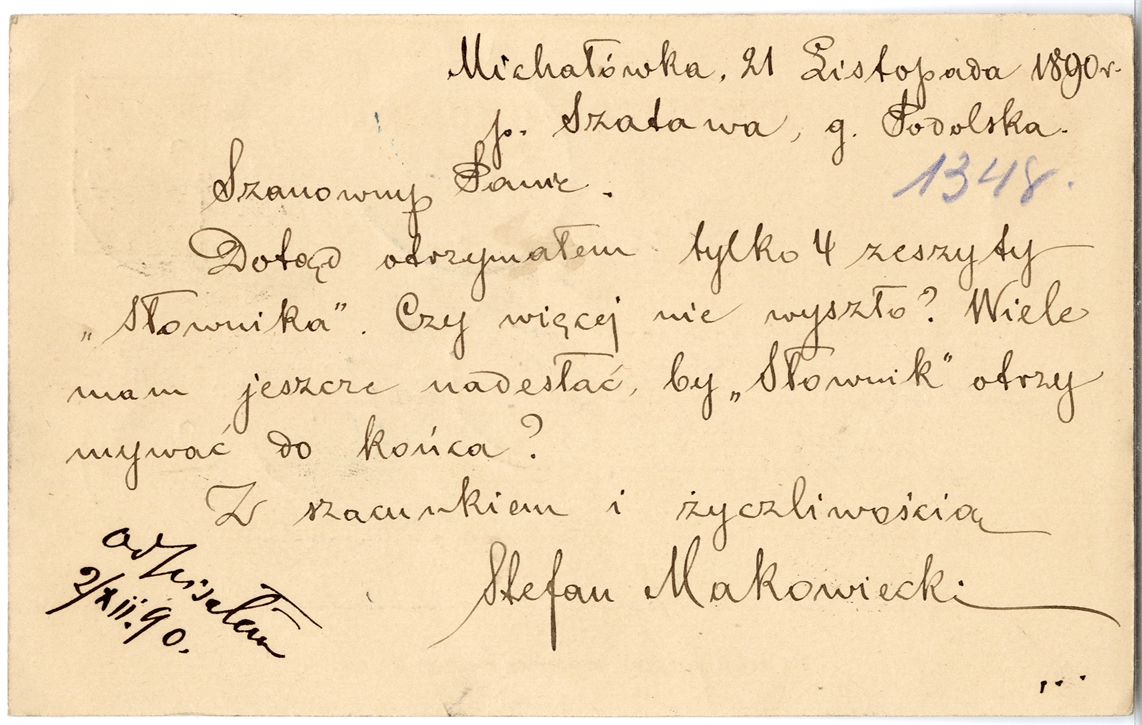 Michałówka, 21 Listopada 1890 r.
p. Szatawa, g. Podolska.
1348.
Szanowny Panie.
Dotąd otrzymałem tylko 4 zeszyty
„Słownika”. Czy więcej nie wyszło? Wiele
mam jeszcze nadesłać, by „Słownik” otrzy
mywać do końca?
Z szacunkiem i życzliwością
Stefan Makowiecki
odpisałem
2/XII.90.